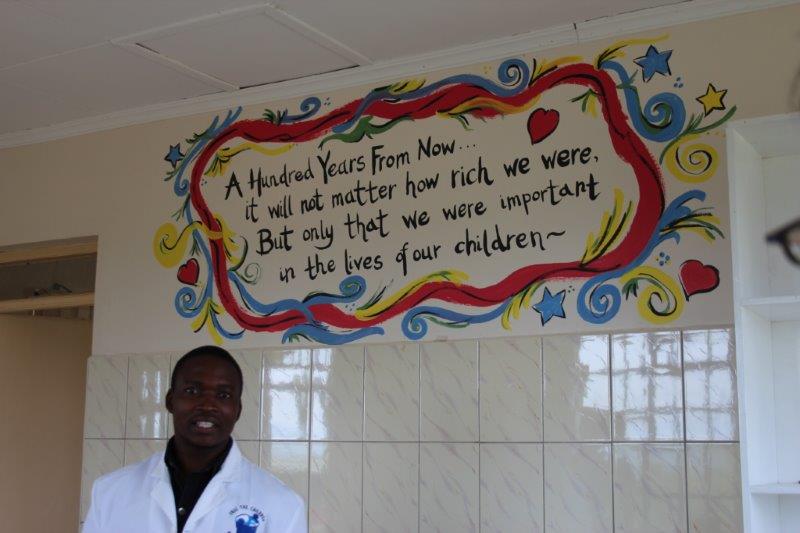 A Hundred Years From Now...
it will not matter how rich we were,
But only that we were important
in the lives of our children~